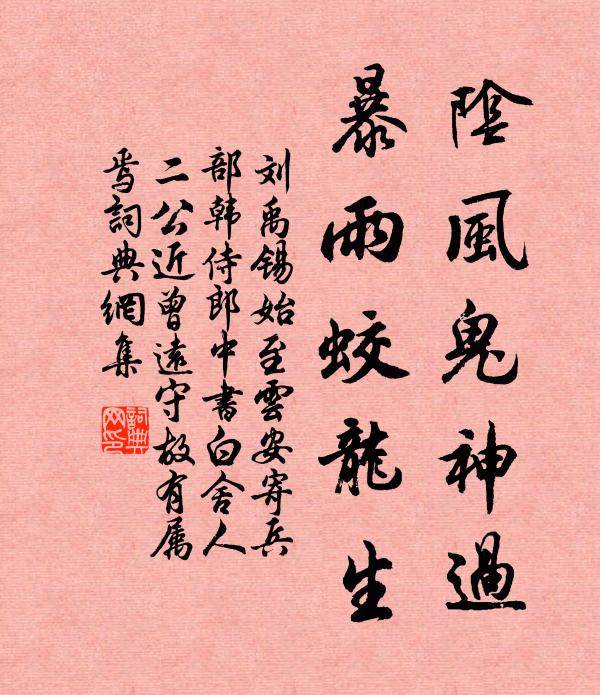 陰風鬼神過
暴雨蛟龍生
刘禹锡始至雲安寄兵
部韩侍郎中書白舍人
二公近曾遠守故有属
焉詞典網集
詞典
网印